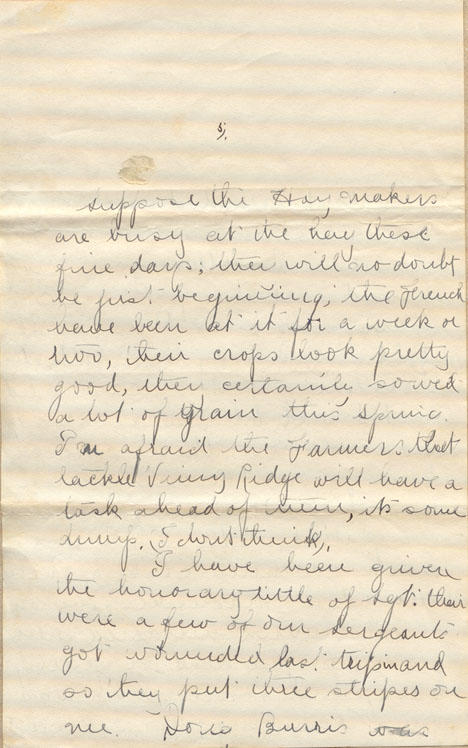 5/.
suppose the Hay makers
are busy at the hay these
fine days; they will no doubt
be just beginning; the French
have been at it for a week or
two, their crops look pretty
good, they certainly sowed
a lot of grain this spring.
I'm afraid the Farmers that
tackle Vimy Ridge will have a
task ahead of them, it's some
dump. (I dont think).
I have been given
the honorary tittle of Sgt. their
were a few of our sergeants
got wounded last trip in and
so they put three stripes on
me. Doris Burris was